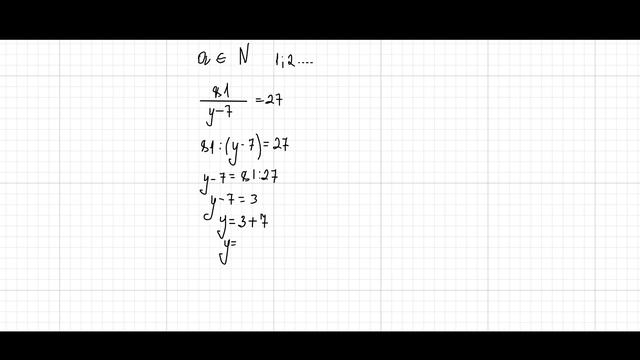 a ∈ N 1;2....
81/(y-7) = 27
81:(y-7)=27
y-7=81:27
y-7=3
y=3+7
y=